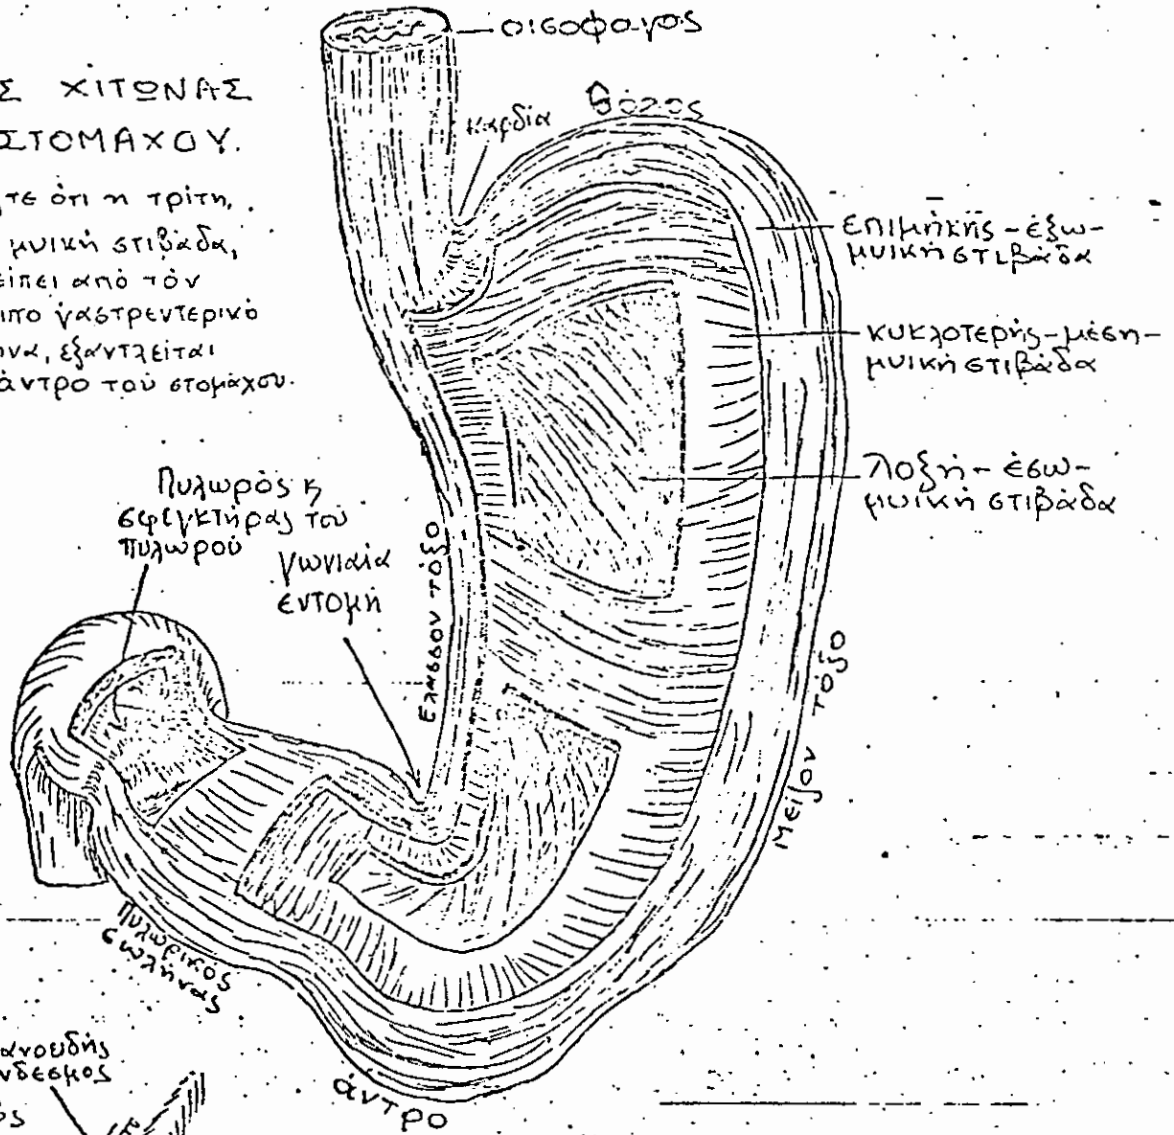 οισοφαγος
Σ ΧΙΤΩΝΑΣ
ΣΤΟΜΑΧΟΥ.
καρδία
θόλος
τε ότι η τρίτη,
μυική στιβάδα,
είπει από τόν
ιπο γαστρεντερικό
να, εξαντλείται
άντρο τού στομάχου.
επιμήκης - έξω -
μυική στιβάδα
κυκλοτερής - μέση -
μυική στιβάδα
λοξή - έσω -
μυική στιβάδα
Πυλωρὸς κ
σφιγκτήρας του
πυλωρού
γωνιαία
εντομή
Ελασσον τόξο
Μείζον τόξο
Πυλωρικός
σωλήνας
άντρο
ανουδής
νδεσμος
ός